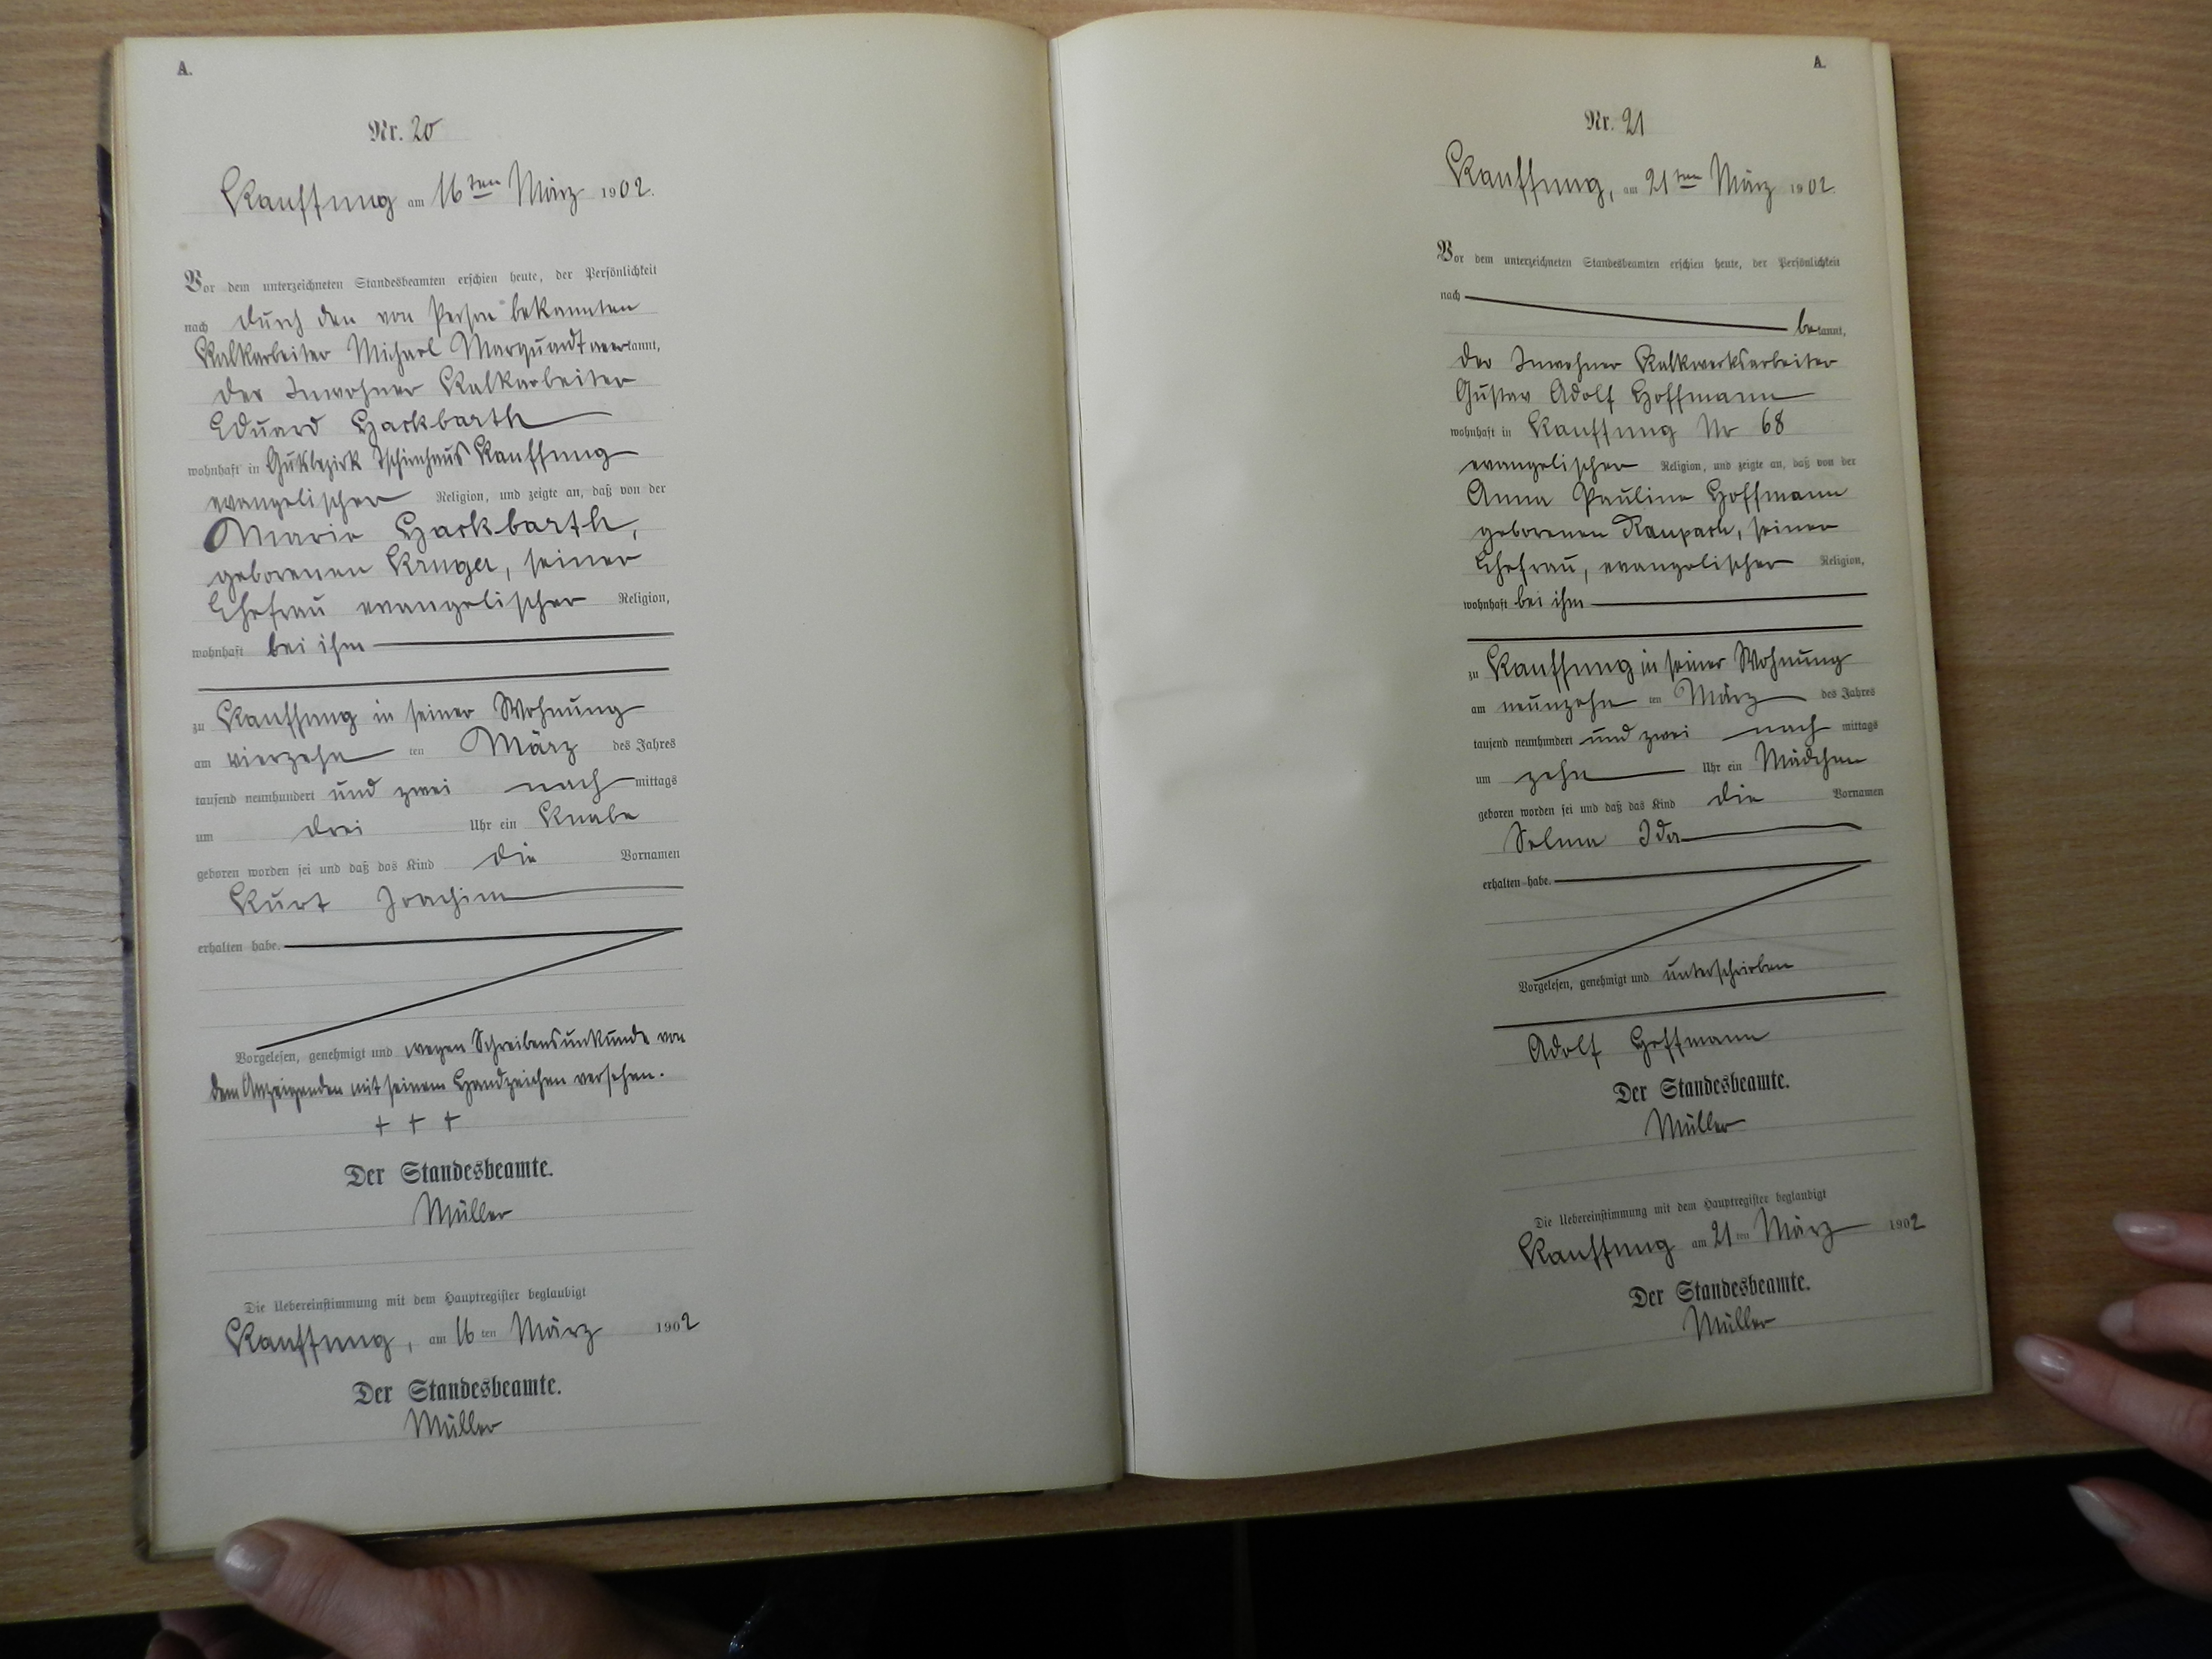 A.
Nr. 20
Kauffung am 16ten März 1902.
Vor dem unterzeichneten Standesbeamten erschien heute, der Persönlichkeit
nach durch den von Person bekannten
Kalkarbeiter Michael Marquardt anerkannt,
der Inwohner Kalkarbeiter
Eduard Hackbarth
wohnhaft in Gutsbezirk Tschirnhaus Kauffung
evangelischer Religion, und zeigte an, daß von der
Marie Hackbarth,
geborenen Krüger, seiner
Ehefrau evangelischer Religion,
wohnhaft bei ihm
zu Kauffung in seiner Wohnung
am vierzehn ten März des Jahres
tausend neunhundert und zwei nach mittags
um drei Uhr ein Knabe
geboren worden sei und daß das Kind die Vornamen
Kurt Joachim
erhalten habe.
Vorgelesen, genehmigt und wegen Schreibensunkunde von
dem Anzeigenden mit seinem Handzeichen versehen.
+ + +
Der Standesbeamte.
Müller
Die Uebereinstimmung mit dem Hauptregister beglaubigt
Kauffung, am 16 ten März 1902
Der Standesbeamte.
Müller
A.
Nr. 21
Kauffung, am 21ten März 1902.
Vor dem unterzeichneten Standesbeamten erschien heute, der Persönlichkeit
nach
bekannt,
der Inwohner Kalkwerksarbeiter
Gustav Adolf Hoffmann
wohnhaft in Kauffung Nr 68
evangelischer Religion, und zeigte an, daß von der
Anna Pauline Hoffmann
geborenen Raupach, seiner
Ehefrau, evangelischer Religion,
wohnhaft bei ihm
zu Kauffung in seiner Wohnung
am neunzehn ten März des Jahres
tausend neunhundert und zwei nach mittags
um zehn Uhr ein Mädchen
geboren worden sei und daß das Kind die Vornamen
Selma Ida
erhalten habe.
Vorgelesen, genehmigt und unterschrieben
Adolf Hoffmann
Der Standesbeamte.
Müller
Die Uebereinstimmung mit dem Hauptregister beglaubigt
Kauffung am 21 ten März 1902
Der Standesbeamte.
Müller